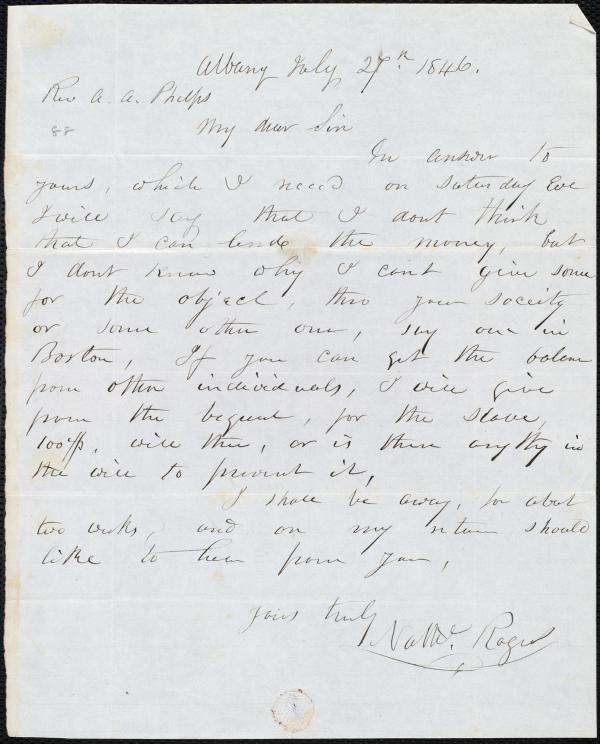 Albany July 27th 1846.
Rev A. A. Phelps
88
My dear Sir
In answer to
yours, which I recd on Saturday Eve
I will say that I dont think
that I can lende the money, but
I dont know why I cant give some
for the object, thro your society
or some other one, say one in
Boston, If you can get the balance
from other individuals, I will give
from the bequest, for the slave,
100$, will this, or is there anything in
the will to prevent it,
I shall be away, for about
two weeks, and on my return should
like to hear from you,
Yours truly
Nathl. Rogers